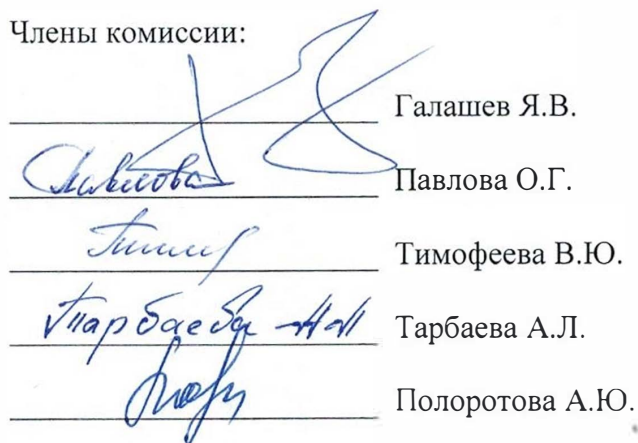 Члены комиссии:
Галашев Я.В.
Павлова Павлова О.Г.
Тимофеева В.Ю.
Тарбаева Тарбаева А.Л.
Полоротова А.Ю.